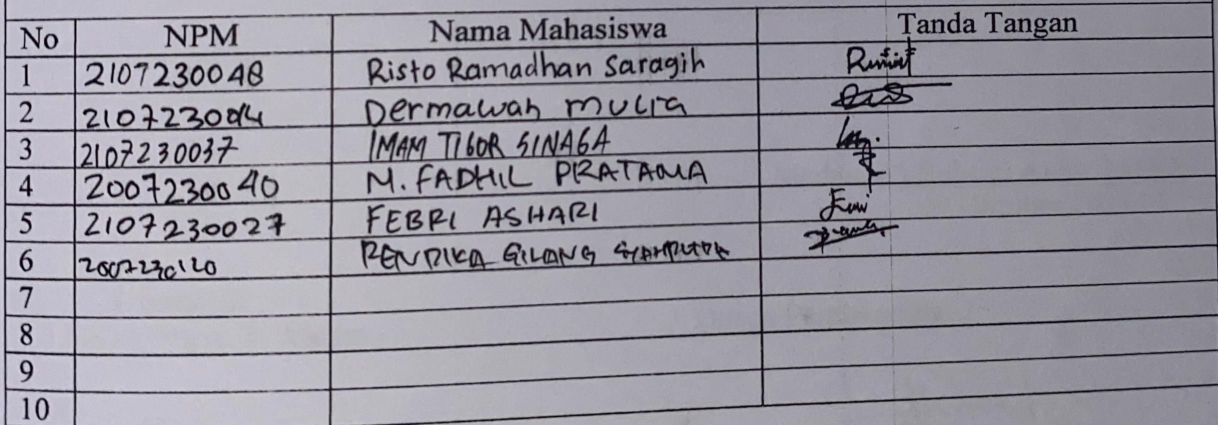 No NPM Nama Mahasiswa Tanda Tangan
1 2107230048 Risto Ramadhan Saragih
2 Dermawan mulia
3 2107230037 IMAM TIGOR SINAGA
4 2007230040 M. FADHIL PRATAMA
5 2107230027 FEBRI ASHARI
6 2007230120 RENDIKA GILANG
7
8
9
10